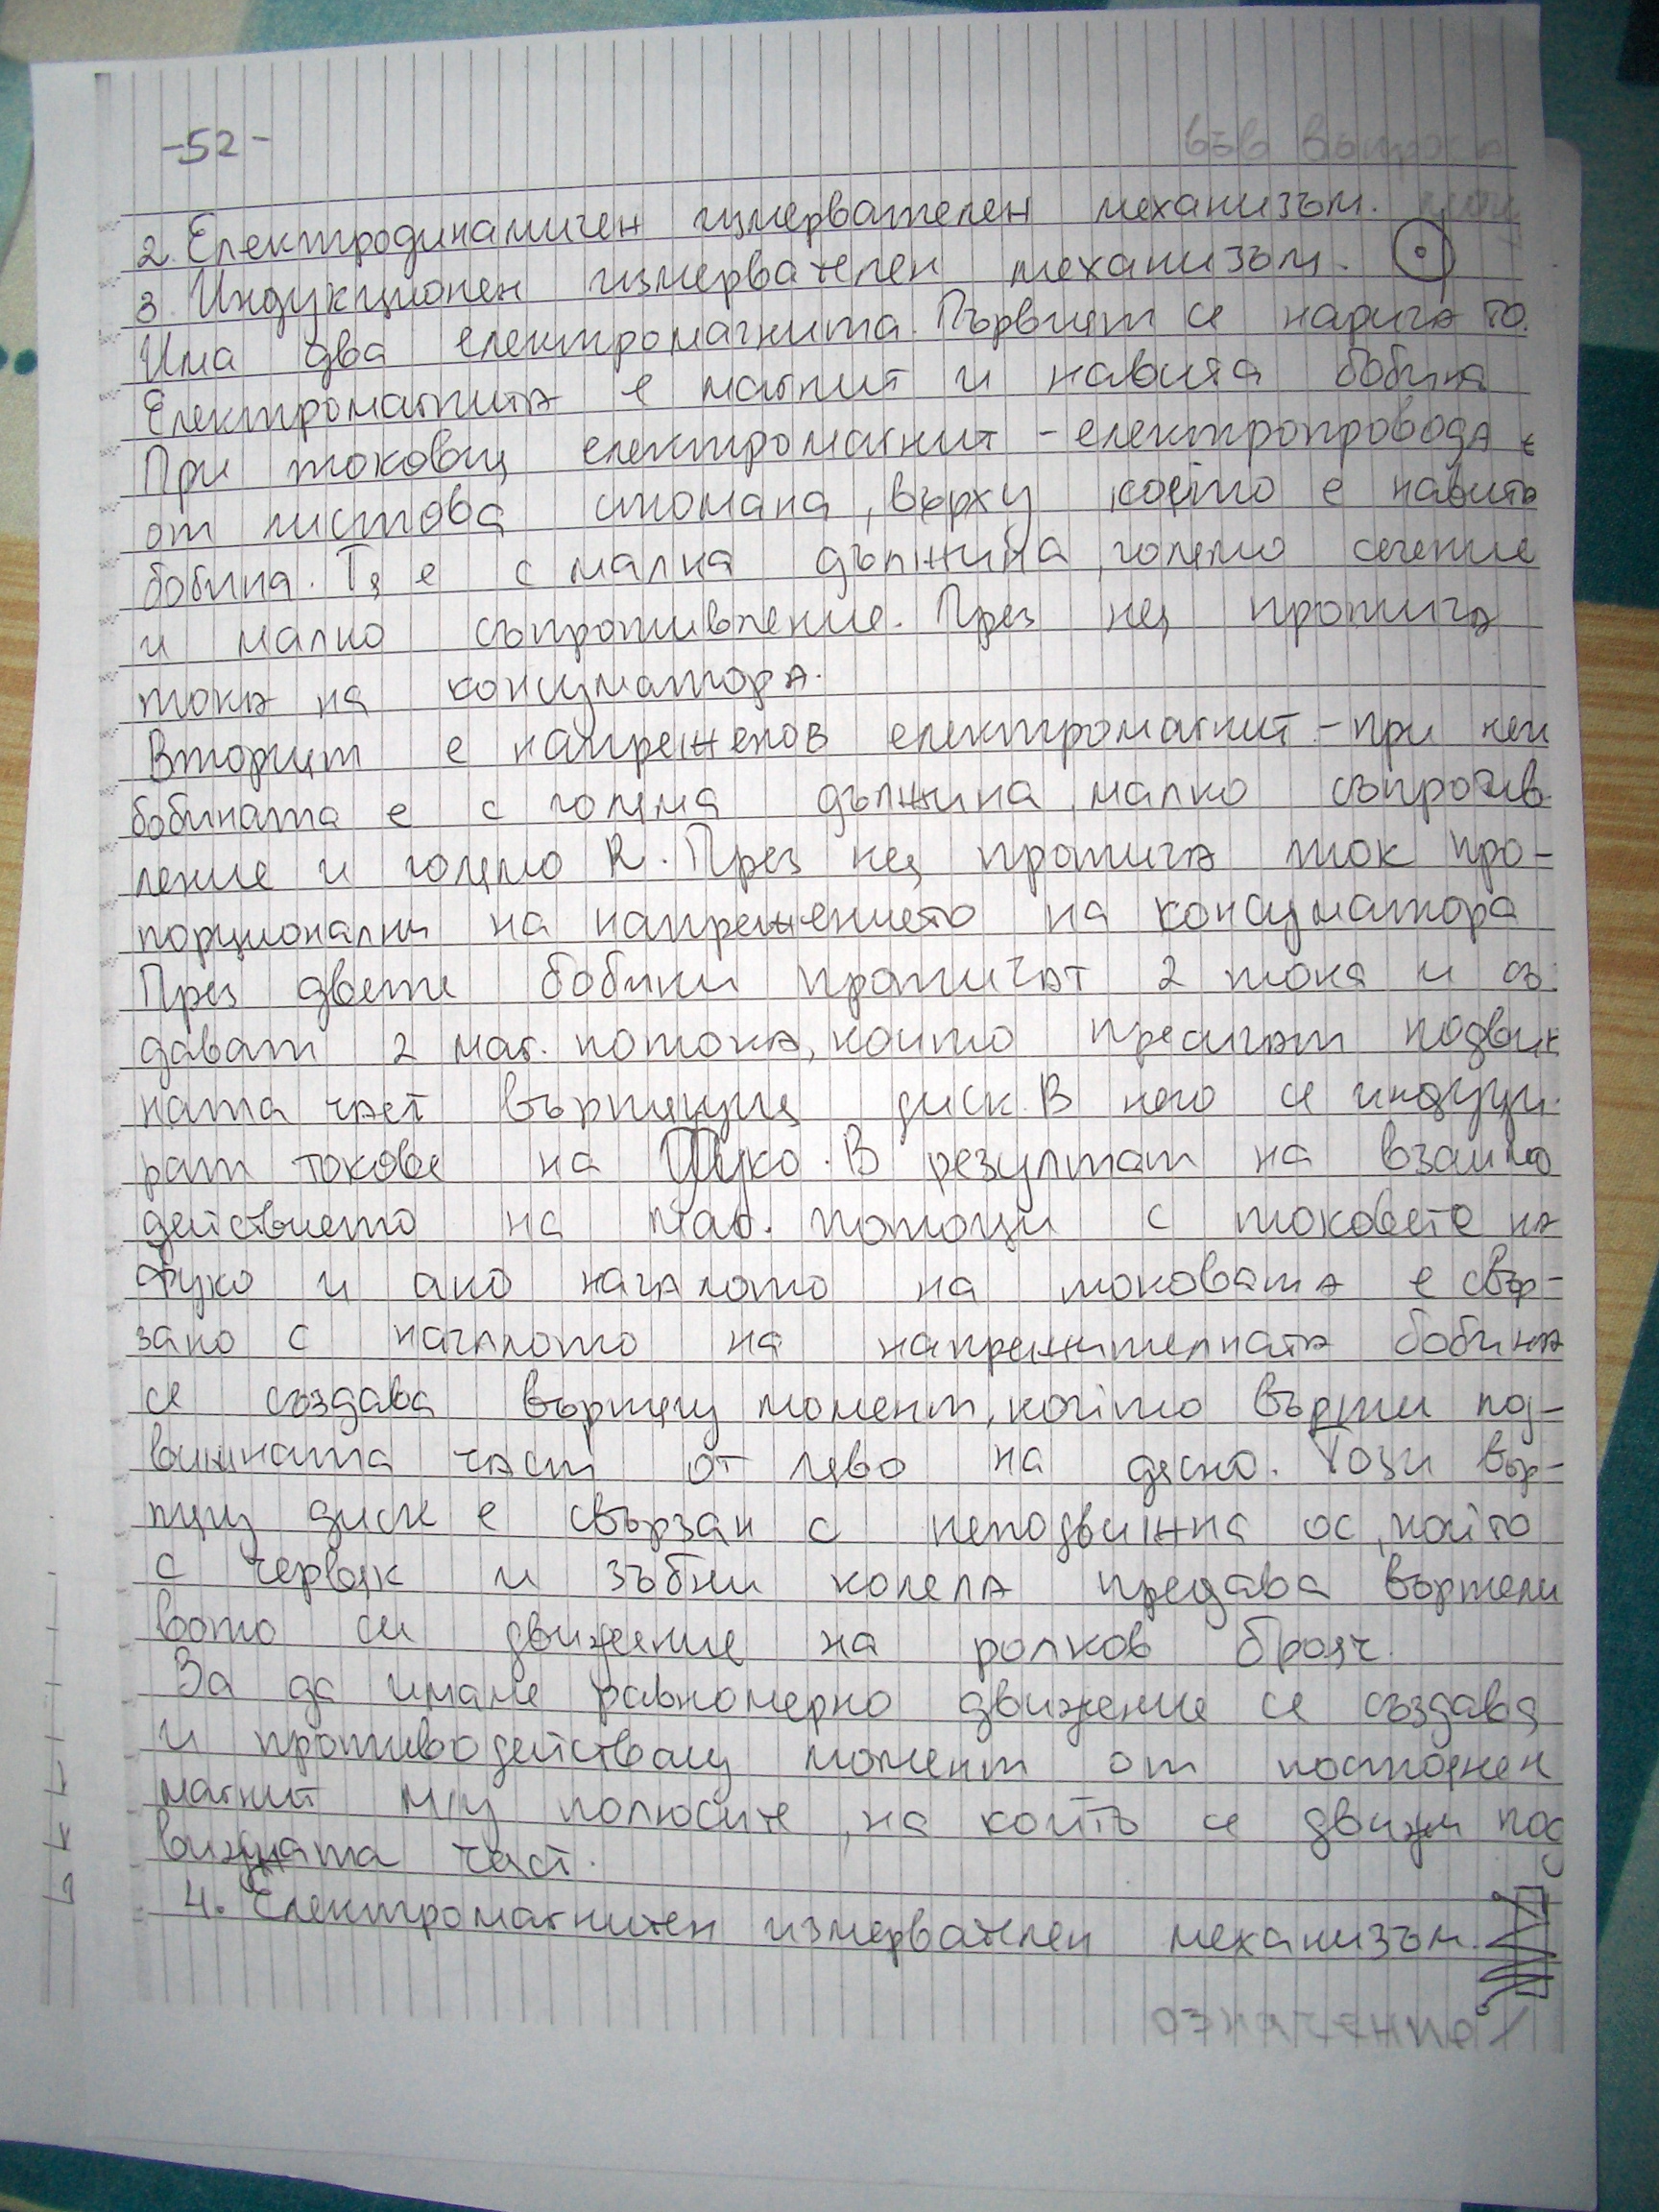 -52-
във въпроса
2. Електродинамичен измервателен механизъм.
3. Индукционен измервателен механизъм.
Има два електромагнита. Първият се нарича то.
Електромагнита е магнит и навита бобина
При токовия електромагнит - електропровода е
от листова стомана, върху която е навита
бобина. Тя е с малка дължина, голямо сечение
и малко съпротивление. През нея протича
тока на консуматора.
Вторият е напреженов електромагнит - при нея
бобината е с голяма дължина, малко съпротив-
ление и голямо R. През нея протича ток про-
порционални на напрежението на консуматора
През двете бобини протичат 2 тока и съ-
дават 2 маг. потока, които пресичат подвиж
ната част въртящия диск. В него се индуци-
рат токове на Фуко. В резултат на взаимо
действието на маг. потоци с токовете на
Фуко и ако началото на токовата е свър-
зано с началото на напрежителната бобина
се създава въртящ момент, който върти под-
вижната част от ляво на дясно. Този вър-
тящ диск е свързан с неподвижна ос, който
с червяк и зъбни колела предава въртели
вото си движение на ролков брояч.
За да имаме равномерно движение се създава
и противодействащ момент от постоянен
магнит м/у полюсите, на който се движи под
вижната част.
4. Електромагнитен измервателен механизъм.